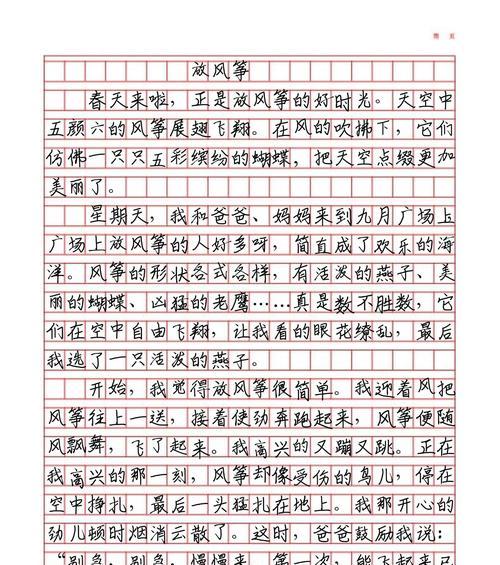 放风筝
春天来啦，正是放风筝的好时光。天空中
五颜六的风筝展翅飞翔。在风的吹拂下，它们
仿佛一只只五彩缤纷的蝴蝶，把天空点缀更加
美丽了。
星期天，我和爸爸、妈妈来到九月广场上
广场上放风筝的人好多呀，简直成了欢乐的海
洋。风筝的形状各式各样，有活泼的燕子、美
丽的蝴蝶、凶猛的老鹰……真是数不胜数，它
们在空中自由飞翔，让我看的眼花缭乱，最后
我选了一只活泼的燕子。
开始，我觉得放风筝很简单。我迎着风把
风筝往上一送，接着使劲奔跑起来，风筝便随
风飘舞，飞了起来。我高兴的又蹦又跳。正在
我高兴的那一刻，风筝却像受伤的鸟儿，停在
空中挣扎，最后一头猛扎在地上。我那开心的
劲儿顿时烟消云散了。这时，爸爸鼓励我说：
“别急，别急，慢慢来，第一次，能飞起来已